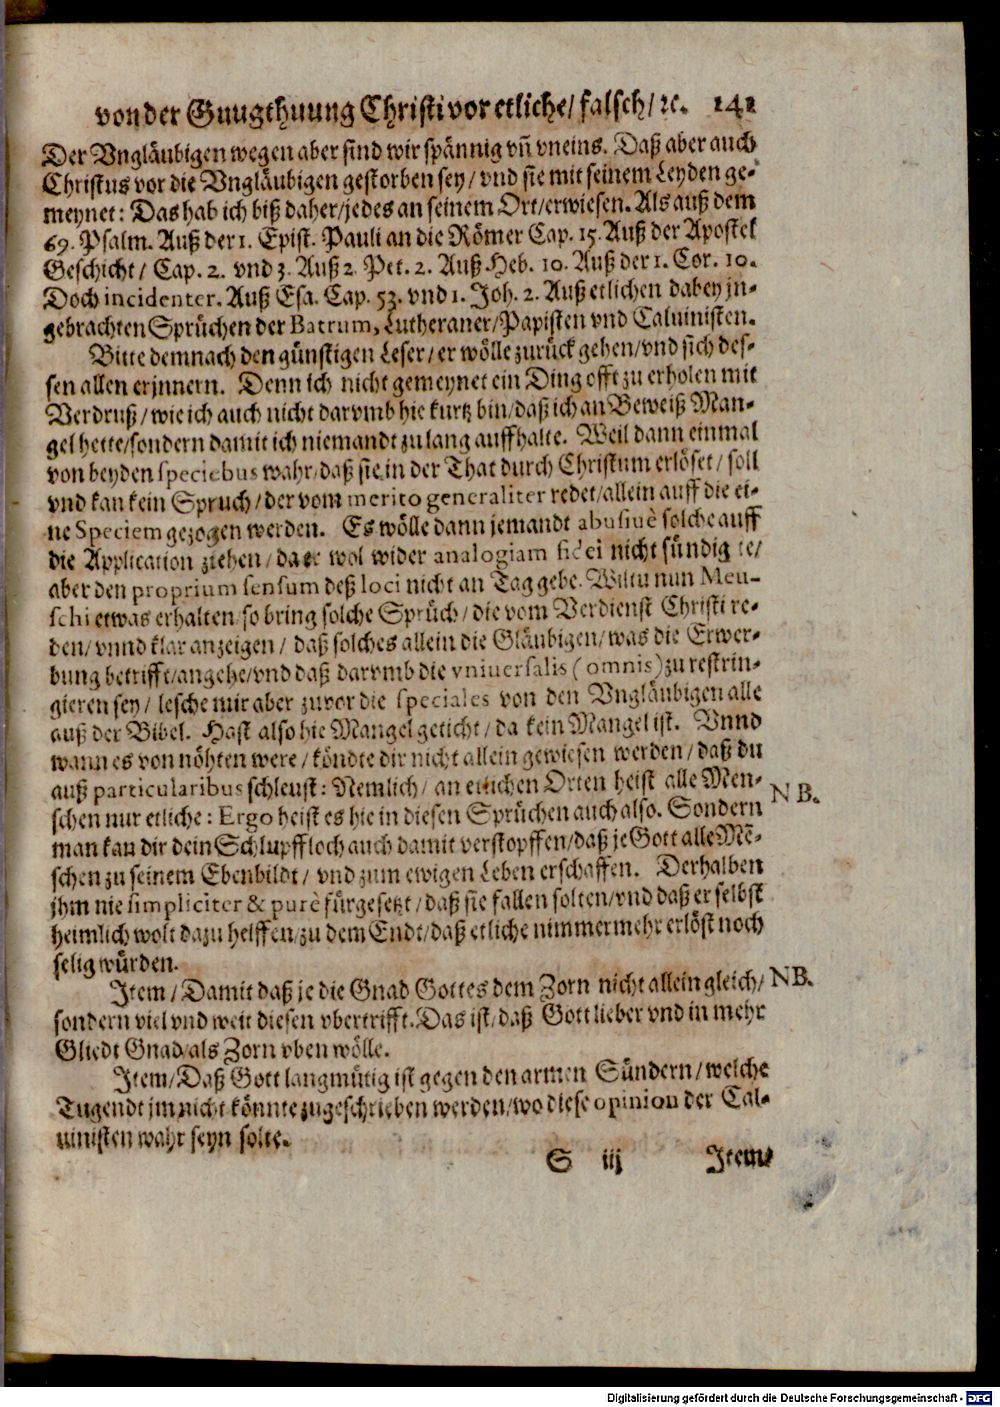 von der Gnugthuung Christi vor etliche/ falsch/ ꝛc. 141
Der Vngläubigen wegen aber sind wir spännig vñ vneins. Daß aber auch
Christus vor die Vngläubigen gestorben sey/ vnd sie mit seinem Leyden ge-
meynet: Das hab ich biß daher/ jedes an seinem Ort/ erwiesen. Als auß dem
69. Psalm. Auß der 1. Epist. Pauli an die Römer Cap. 15. Auß der Apostel
Geschicht/ Cap. 2. vnd 3. Auß 2. Pet. 2. Auß Heb. 10. Auß der 1. Cor. 10.
Doch incidenter. Auß Esa. Cap. 53. vnd 1. Joh. 2. Auß etlichen dabey jn-
gebrachten Sprüchen der Patrum, Lutheraner/ Papisten vnd Caluinisten.
Bitte demnach den günstigen Leser/ er wölle zurück gehen/ vnd sich des-
sen allen erjnnern. Denn ich nicht gemeynet ein Ding offt zu erholen mit
Verdruß/ wie ich auch nicht darvmb hie kurtz bin/ daß ich an Beweiß Man-
gel hette/ sondern damit ich niemandt zu lang auffhalte. Weil dann einmal
von beyden speciebus wahr/ daß sie in der That durch Christum erlöset/ soll
vnd kan kein Spruch/ der vom merito generaliter redet/ allein auff die ei-
ne Speciem gezogen werden. Es wölle dann jemandt abusiuè solche auff
die Application ziehen/ da er wol wider analogiam fidei nicht sündigte/
aber den proprium sensum deß loci nicht an Tag gebe. Wiltu nun Meu-
schi etwas erhalten/ so bring solche Sprüch/ die vom Verdienst Christi re-
den/ vnnd klar anzeigen/ daß solches allein die Gläubigen/ was die Erwer-
bung betrifft/ angehe/ vnd daß darvmb die vniuersalis (omnis) zu restrin-
gieren sey/ lesche mir aber zuvor die speciales von den Vngläubigen alle
auß der Bibel. Hast also hie Mangel geticht/ da kein Mangel ist. Vnnd
wann es von nöhten were/ köndte dir nicht allein gewiesen werden/ daß du
auß particularibus schleust: Nemlich/ an etlichen Orten heist alle Men-
schen nur etliche: Ergo heist es hie in diesen Sprüchen auch also. Sondern
NB.
man kan dir dein Schlupffloch auch damit verstopffen/ daß je Gott alle Mẽ-
schen zu seinem Ebenbildt/ vnd zum ewigen Leben erschaffen. Derhalben
jhm nie simpliciter & purè fürgesetzt/ daß sie fallen solten/ vnd daß er selbst
heimlich wolt dazu helffen/ zu dem Endt/ daß etliche nimmermehr erlöst noch
selig würden.
Item/ Damit daß je die Gnad Gottes dem Zorn nicht allein gleich/
NB.
sondern viel vnd weit diesen vbertrifft. Das ist/ daß Gott lieber vnd in mehr
Gliedt Gnad/ als Zorn vben wölle.
Item/ Daß Gott langmütig ist gegen den armen Sündern/ welche
Tugendt jm nicht könnte zugeschrieben werden/ wo diese opinion der Cal-
uinisten wahr seyn solte.
S iij Item/
Digitalisierung gefördert durch die Deutsche Forschungsgemeinschaft - DFG